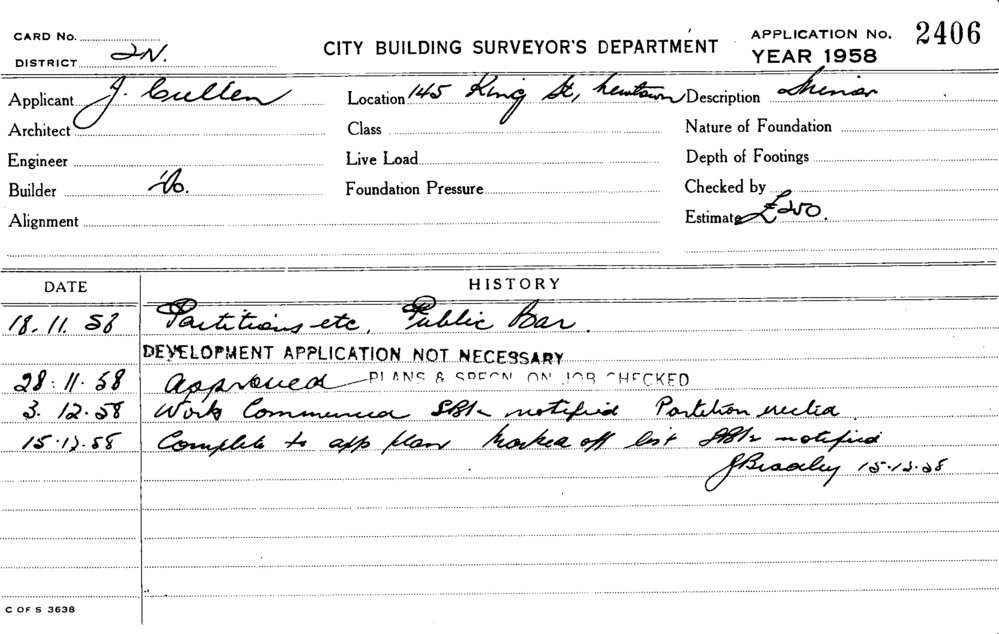 CARD No.
DISTRICT 2N.
CITY BUILDING SURVEYOR'S DEPARTMENT
APPLICATION No. 2406
YEAR 1958
Applicant J. Cullen Location 145 King St, Newtown Description Minor
Architect Class Nature of Foundation
Engineer Live Load Depth of Footings
Builder Do. Foundation Pressure Checked by
Alignment Estimate £250.
DATE HISTORY
18.11.58 Partitions etc. Public Bar.
DEVELOPMENT APPLICATION NOT NECESSARY
28.11.58 Approved PLANS & SPECN ON JOB CHECKED
3.12.58 Work Commenced notified Partition erected
15.12.58 Complete to app plan Marked off list notified
JBradley 15.12.58
C OF S 3638